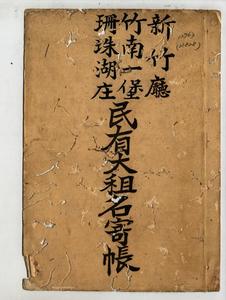 新竹廳
竹南一堡
珊珠湖庄
民有大租名寄帳